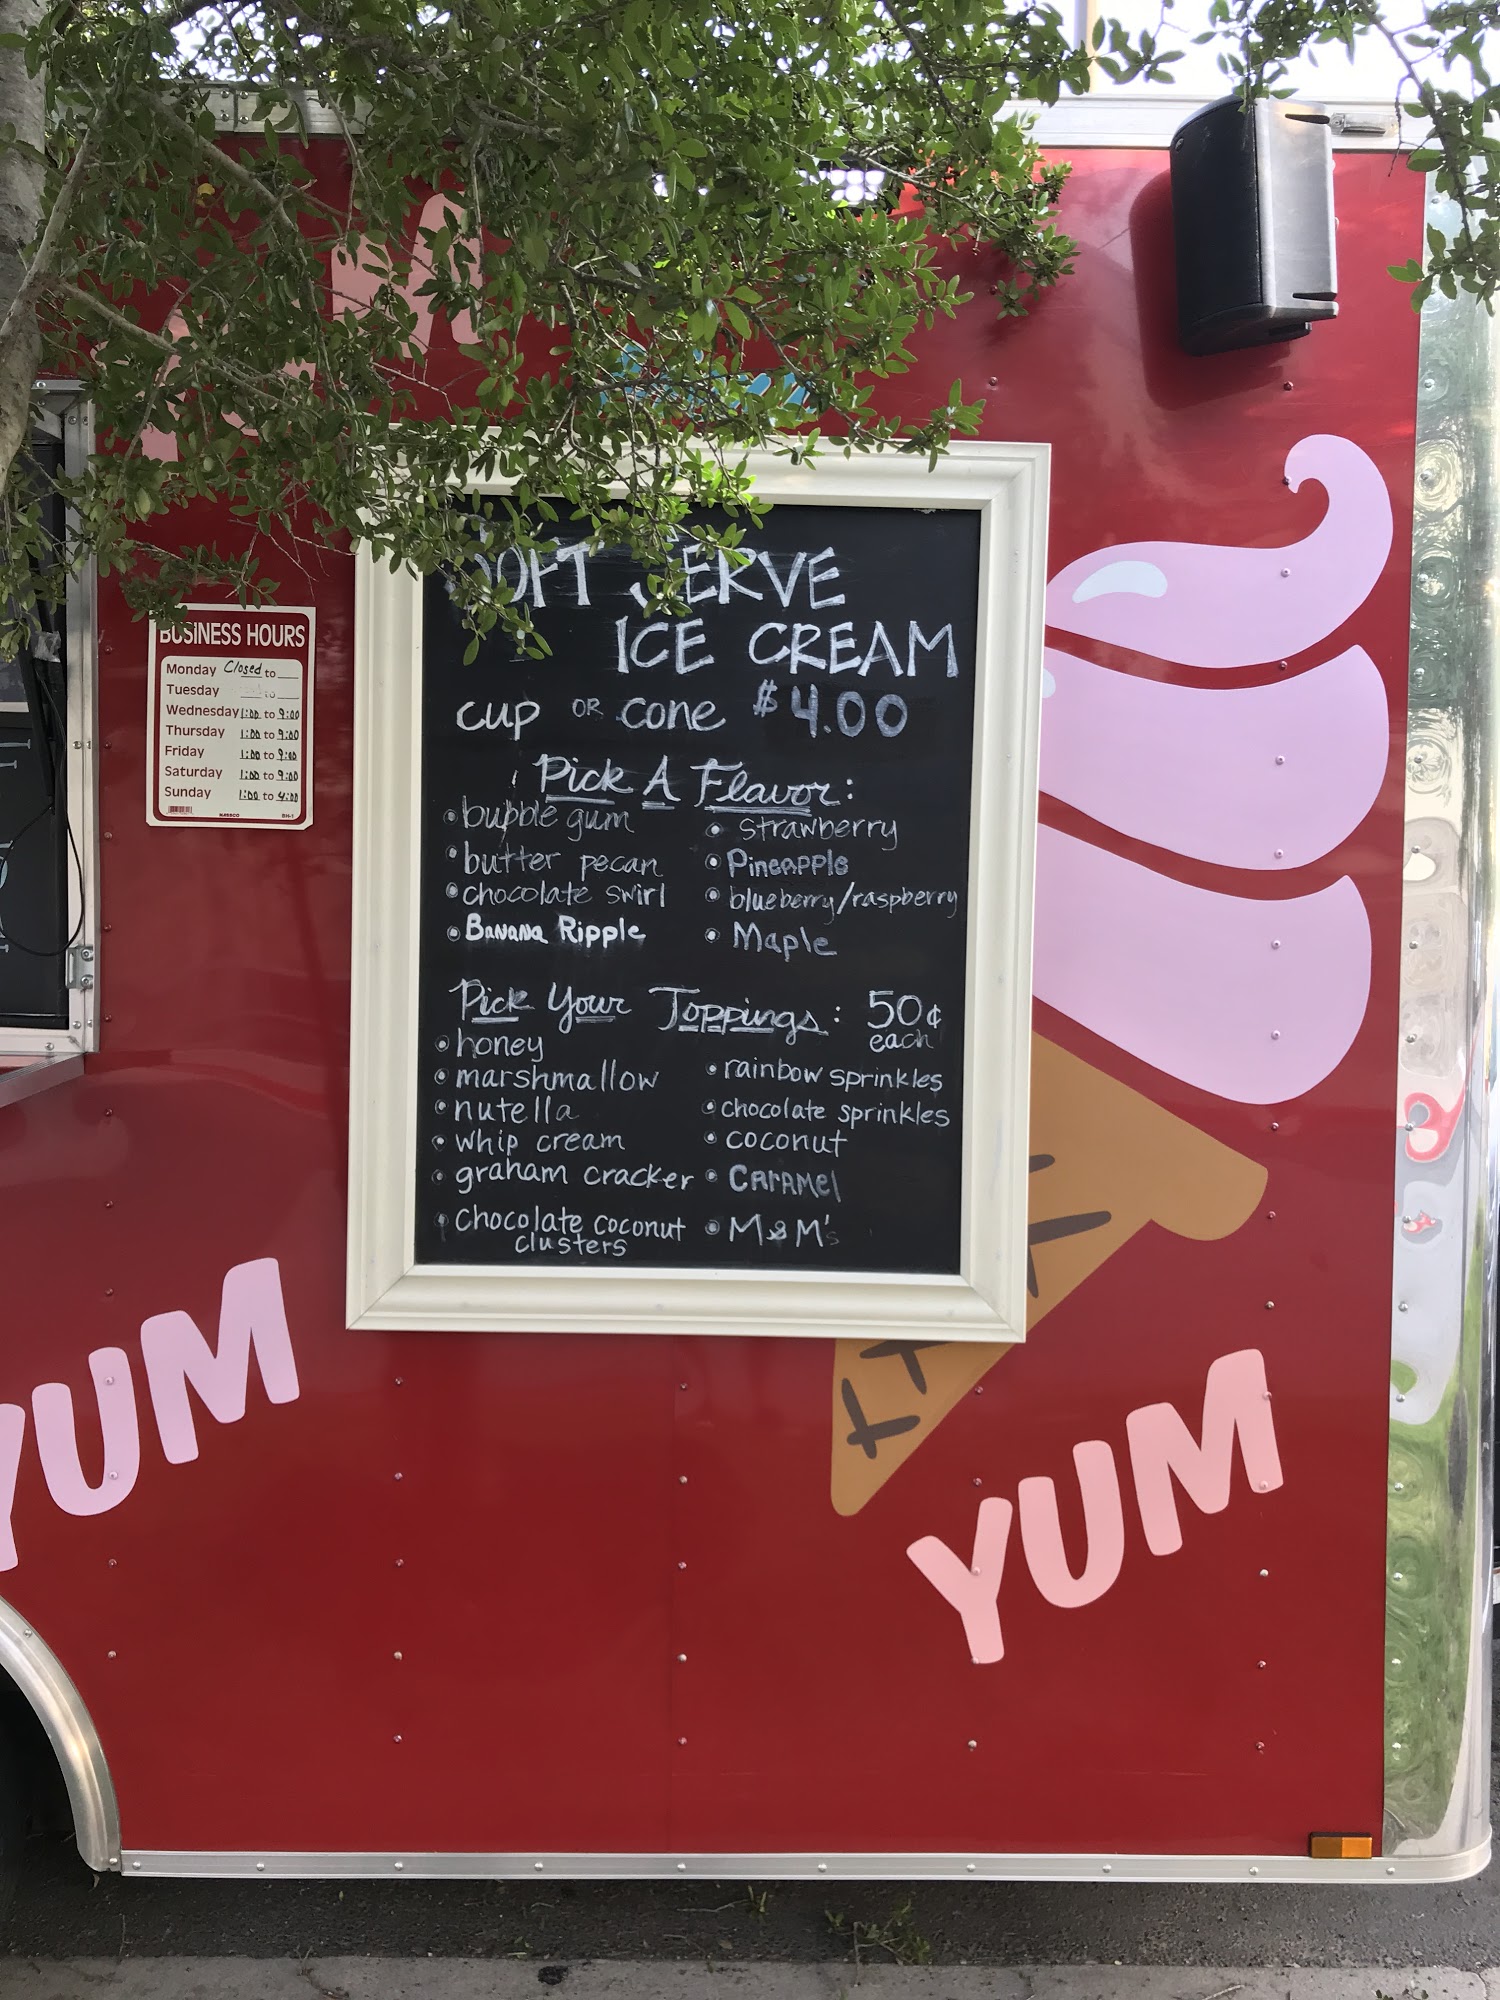 SOFT SERVE
ICE CREAM
cup OR cone $4.00
Pick A Flavor:
• bubble gum
• butter pecan
• chocolate swirl
• Banana Ripple
• strawberry
• Pineapple
• blueberry/raspberry
• Maple
Pick Your Toppings: 50¢
each
• honey
• marshmallow
• nutella
• whip cream
• graham cracker
• Chocolate coconut
clusters
• rainbow sprinkles
• chocolate sprinkles
• coconut
• CARAMEl
• M&M's
BUSINESS HOURS
Monday Closed to
Tuesday to
Wednesday 1:00 to 9:00
Thursday 1:00 to 9:00
Friday 1:00 to 9:00
Saturday 1:00 to 9:00
Sunday 1:00 to 4:00
BH-1
YUM
YUM